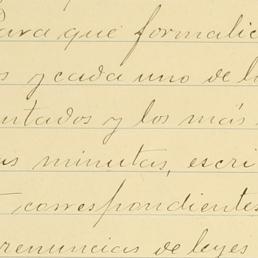 Para que formalic
s y cada uno de l
ntados y los más
as minutas, escri
correspondientes
renuncias de leyes